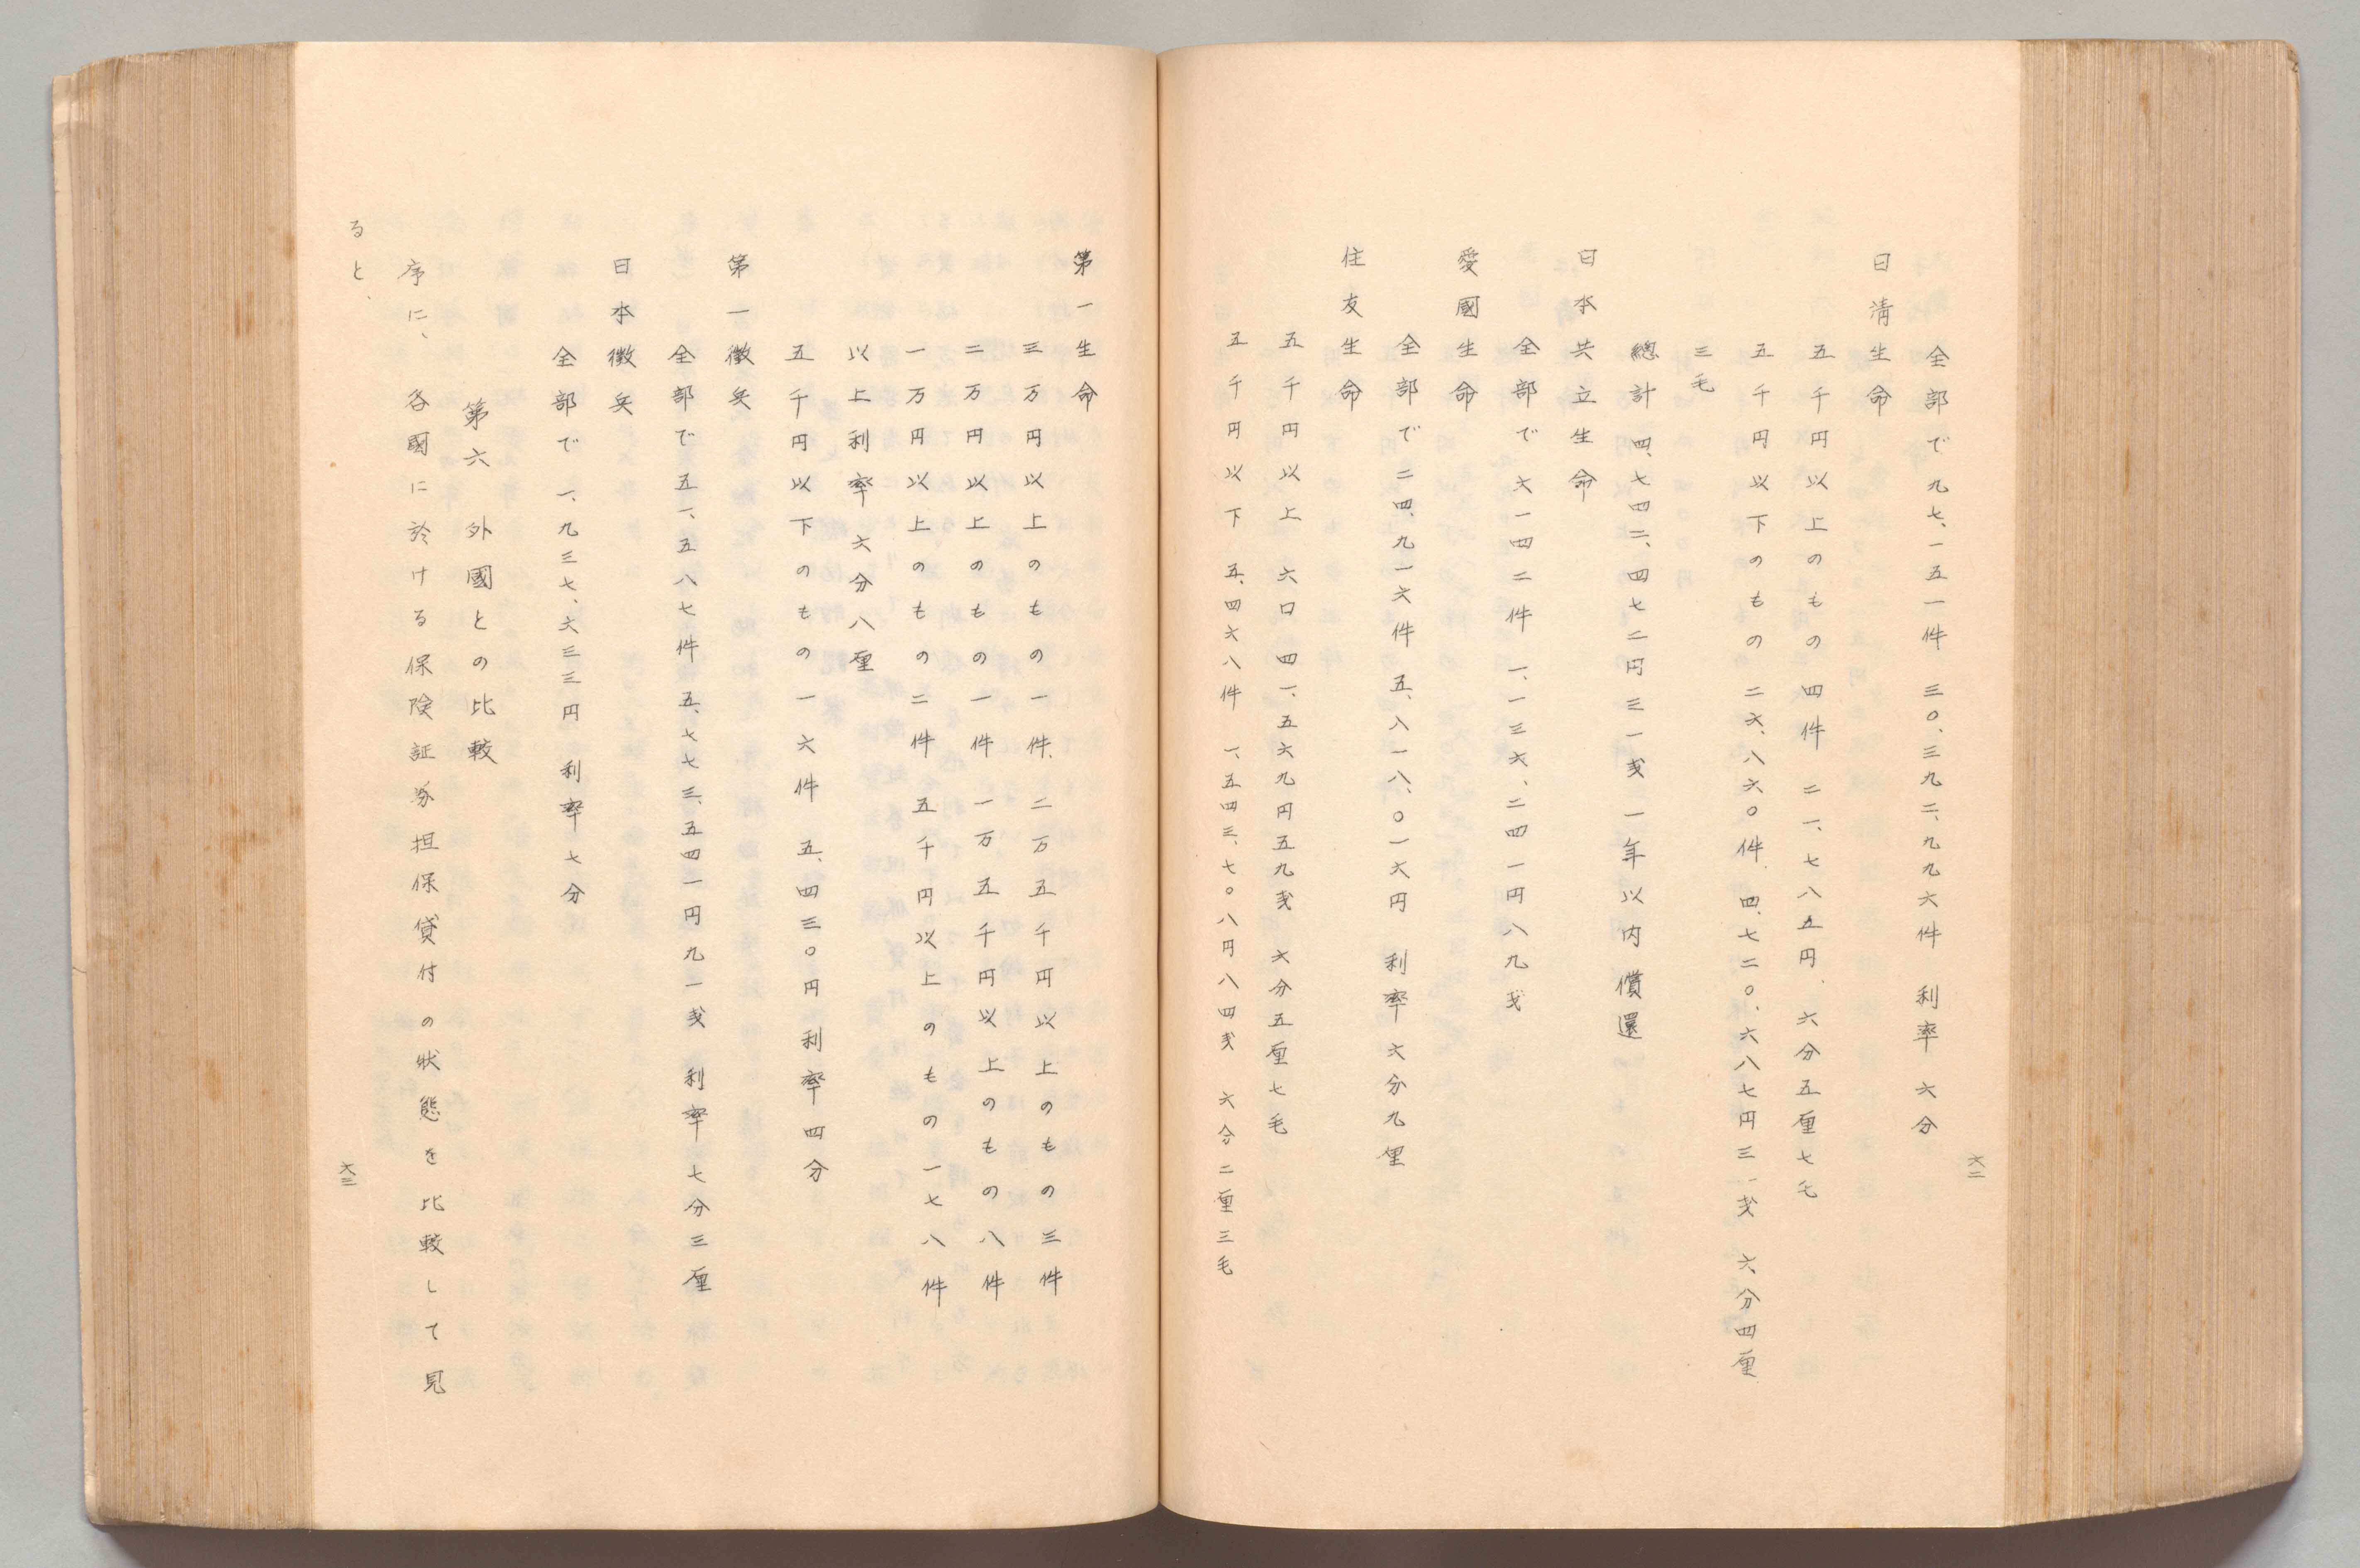 全部で九七、一五一件 三〇、三九二、九九六件 利率 六分
日清生命
五千円以上のもの 四件 二一、七八五円、六分五厘七毛
五千円以下のもの 二六、八六〇件、四、七二〇、六八七円三一戋 六、分四厘
三毛
總計 四、七四二、四七二円三一戋 一年以内償還
日本共立生命
全部で 六一四二件 一、一三六、二四一円八九戋
愛國生命
全部で二四、九一六件 五、八一八、〇一六円 利率六分九厘
住友生命
五千円以上 六口 四一、五六九円五九戋 六分五厘七毛
五千円以下 五、四六八件 一、五四三、七〇八円八四戋 六分二厘三毛
六二
第一生命
三万円以上のもの一件、二万五千円以上のもの三件
二万円以上のもの一件 一万五千円以上のもの八件
一万円以上のもの二件 五千円以上のもの一七八件
以上利率 六分八厘
五千円以下のもの一六件 五、四三〇円 利率四分
第一徴兵
全部で五一、五八七件 五、七七三、五四一円九一戋 利率七分三厘
日本徴兵
全部で 一、九三七、六三三円 利率七分
第六 外國との比較
序に、各國に於ける保険証券担保貸付の状態を比較して見
ると、
六三